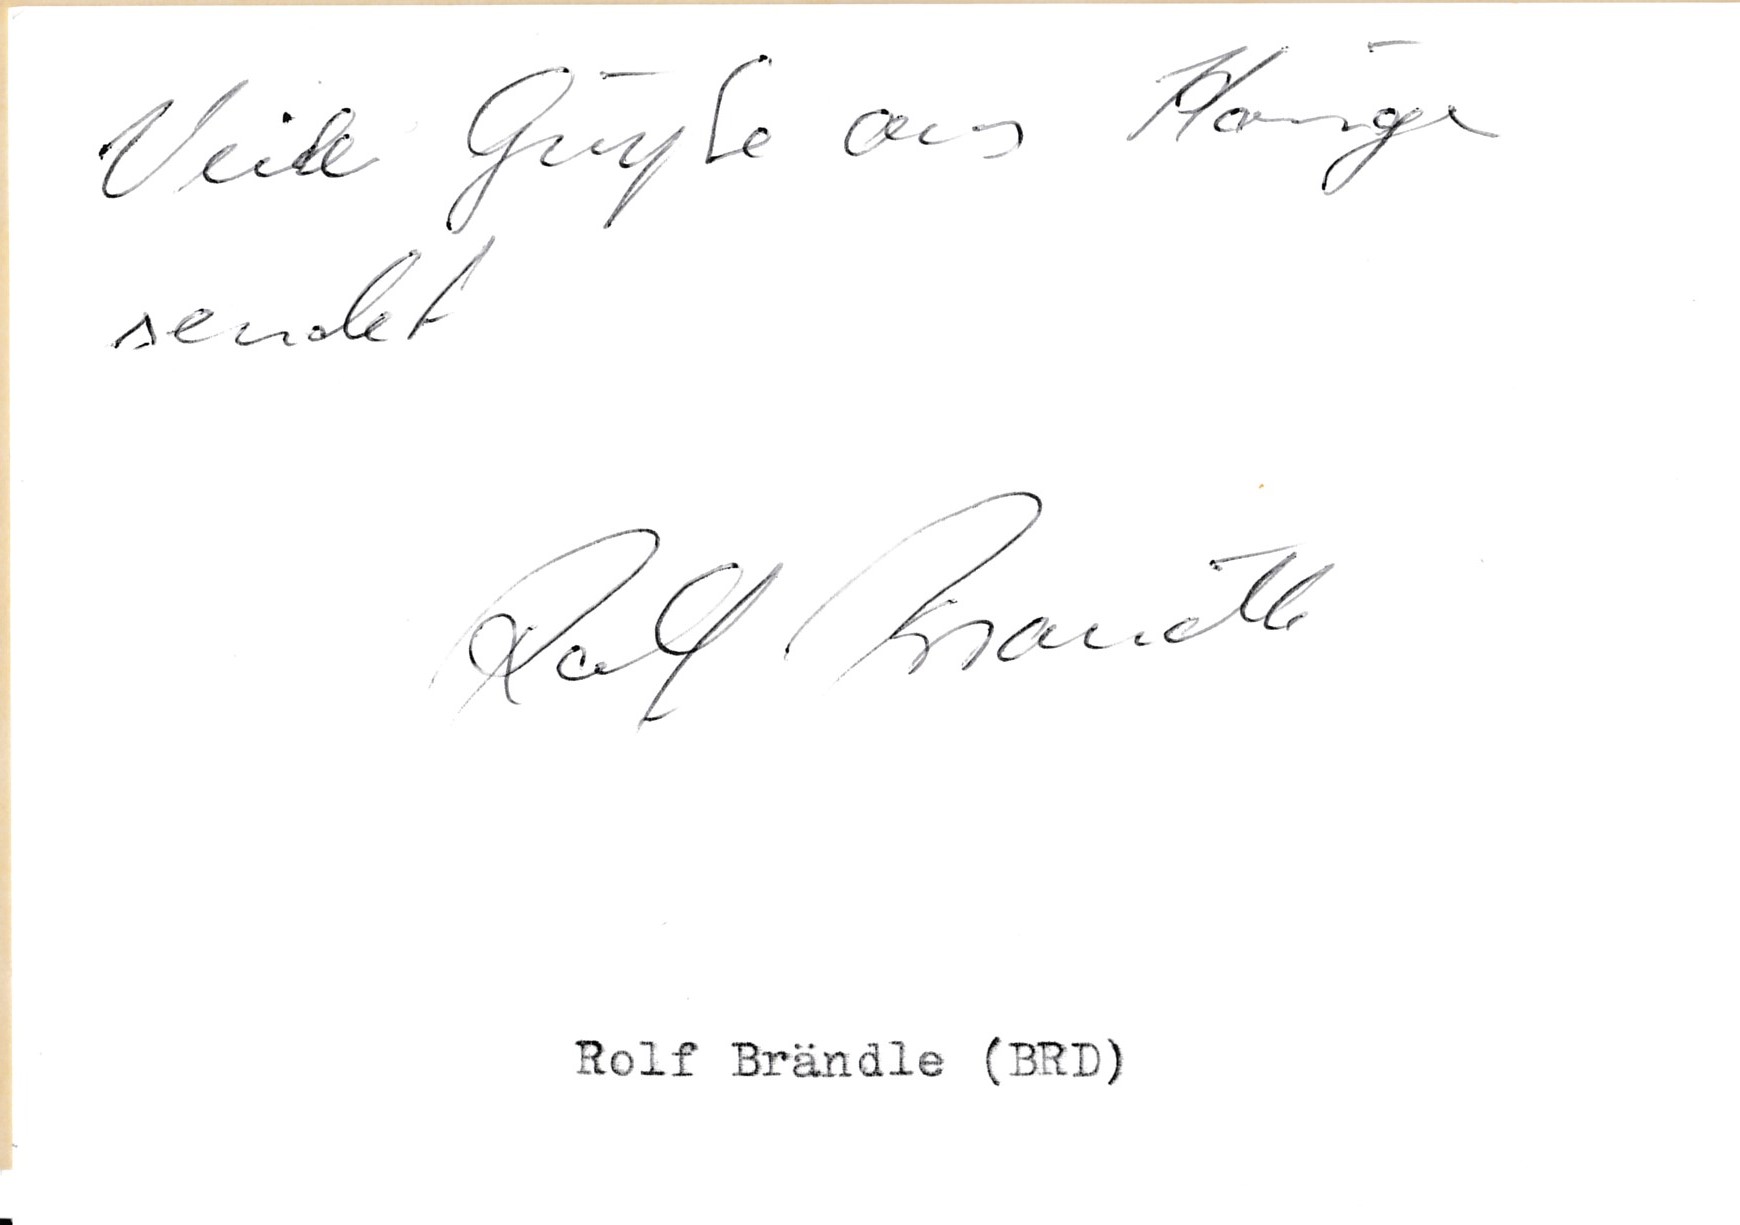 Viele Grüße aus
sendet
Rolf Brändle
Rolf Brändle (BRD)